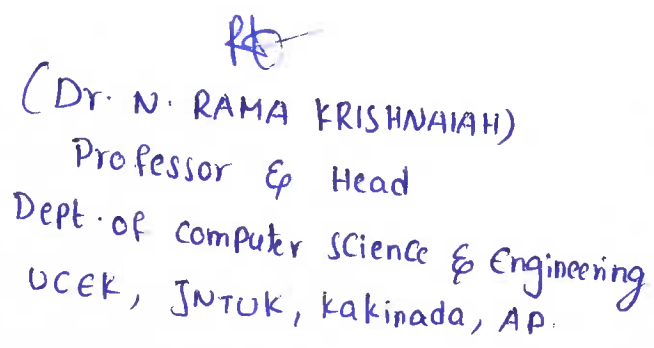 (Dr. N. RAMA KRISHNAIAH)
Professor & Head
Dept. of Computer Science & Engineering
UCEK, JNTUK, Kakinada, AP.